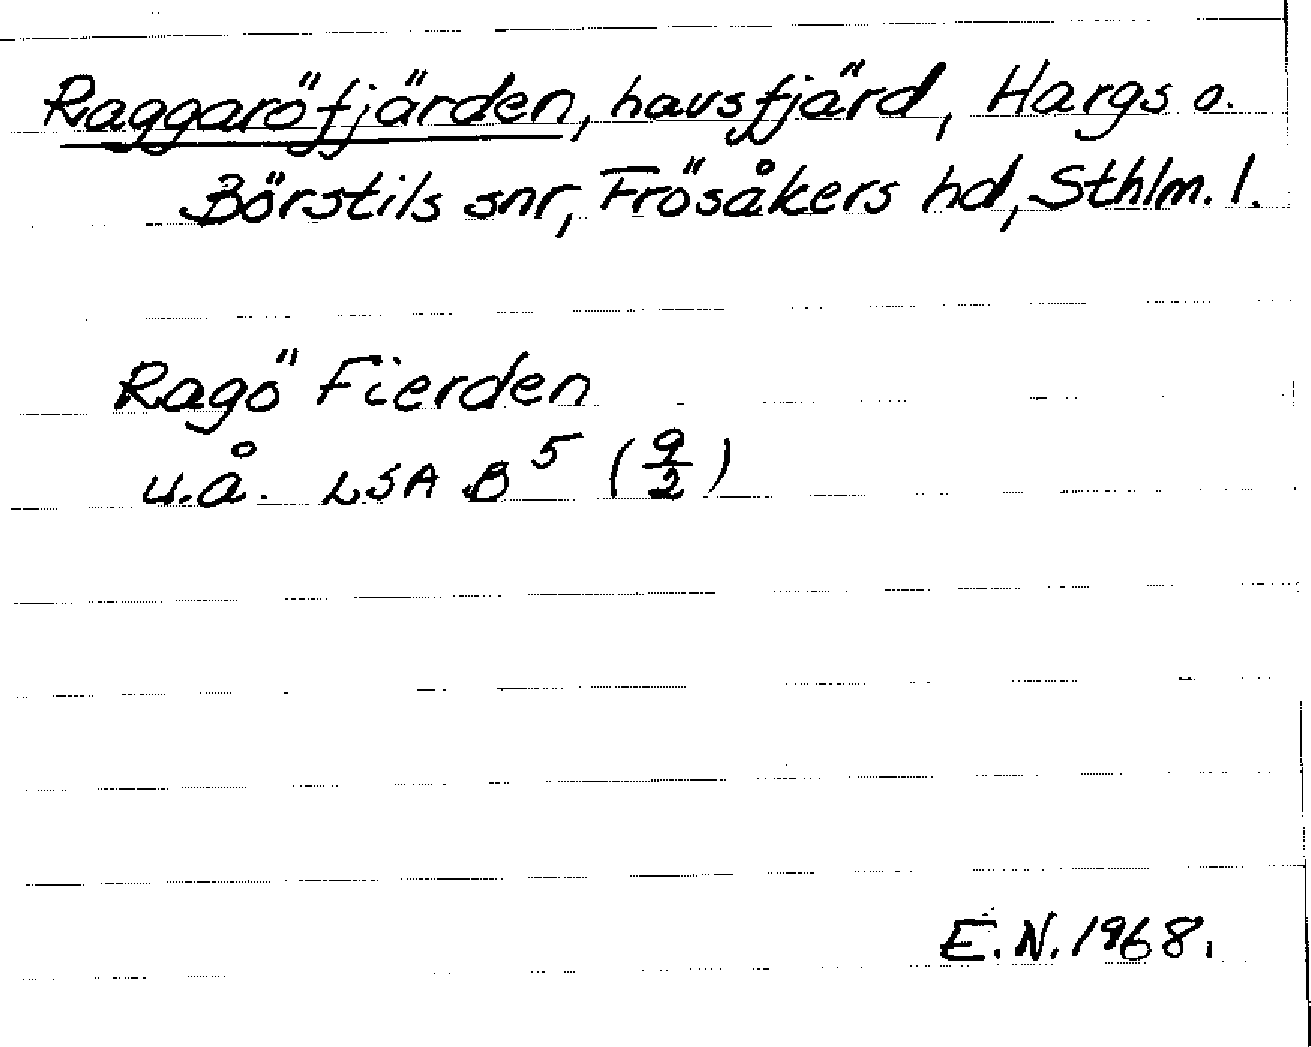 Raggaröfjärden, havsfjärd, Hargs o.
Börstils snr, Frösåkers hd, Sthlm. l.
Ragö Fierden
u.å. LSA B⁵ (9/2)
E.N. 1968.